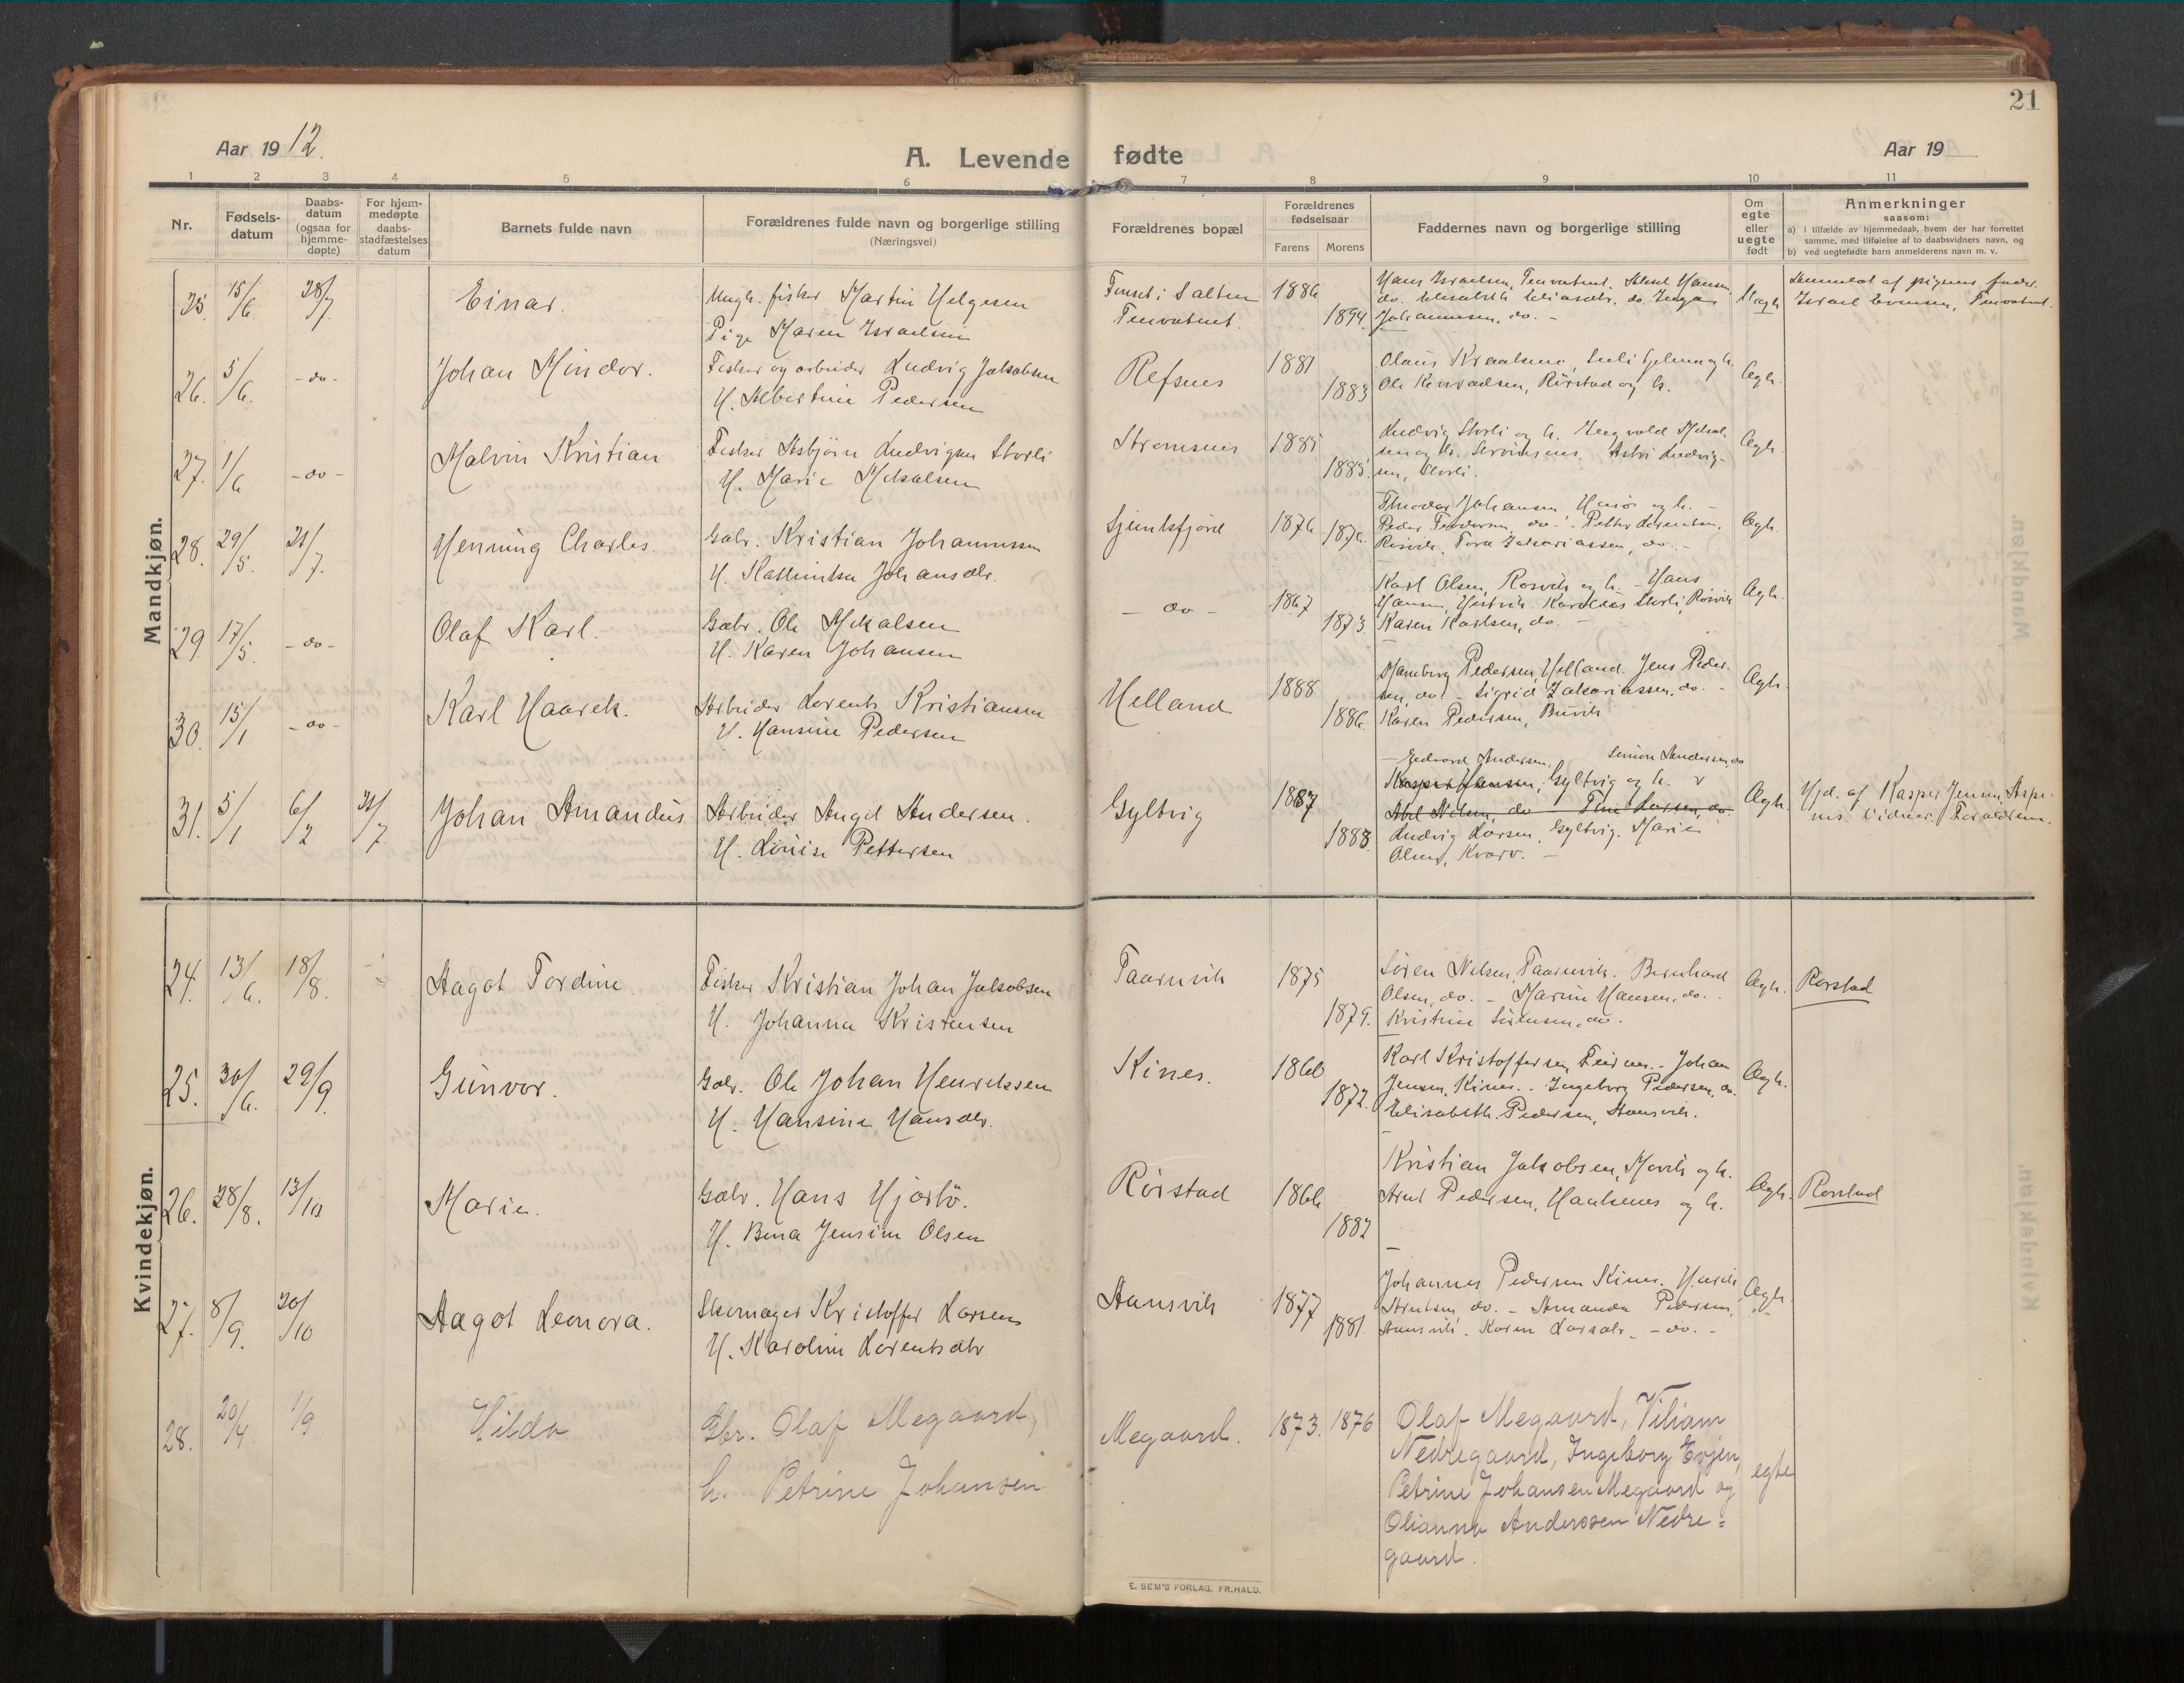 21
Aar 1912.
A. Levende fødte
Aar 19
1 2 3 4 5 6 7 8 9 10 11
Nr.
Fødsels-
datum
Daabs-
datum
(ogsaa for
hjemme-
døpte)
For hjem-
medøpte
daabs-
stadfæstelses
datum
Barnets fulde navn
Forældrenes fulde navn og borgerlige stilling
(Næringsvei)
Forældrenes bopæl
Forældrenes
fødselsaar
Farens Morens
Faddernes navn og borgerlige stilling
Om
egte
eller
uegte
født
Anmerkninger
saasom:
a) i tilfælde av hjemmedaab, hvem der har forrettet
samme, med tilføielse af to daabsvidners navn, og
b) ved uegtefødte barn anmelderens navn m. v.
Mandkjøn.
25. 15/6. 28/7. Einar. Ungk. fisker Martin Helgesen
Pige Maren Israelsen
1886
1894
Hans Israelsen,
Johannesen, do. -
Uægh.
Anmeldt af pigens fader
Israel Evensen,
26. 5/6. - do - Johan Mindor. Fisker og arbeider Ludvig Jakobsen
H. Albertine Pedersen
Refsnes 1881
1883
Ole Konradsen, Rørstad og h.
Ægh.
27. 1/6 - do - Malvin Kristian Fisker Asbjørn Ludvigsen Storli
H. Marie Mikalsen
Strømsnes 1885
1885
Ludvig Storli og h.
sen, Storli.
Ægh.
28. 29/5. 21/7. Henning Charles Gbr. Kristian Johannessen
H. Kathinka Johansdtr.
1876 1876.
Theodor Johansen
Peder Teodorsen, do. - Petter Lorentsen,
Røsvik, Tora Zakariassen, do. -
Ægh.
29. 17/5. - do - Olaf Karl. Gbr. Ole Mikalsen
H. Karen Johansen
- do - 1867
1873.
Karl Olsen, Røsvik og h. - Hans
Hansen, Storli, Røsvik
Karen Karlsen, do. -
Ægh.
30. 15/1 - do - Karl Haarek. Arbeider Lorents Kristiansen
H. Hansine Pedersen
Helland 1888
1886.
Pedersen, Helland. Jens Peder-
sen, do. - Sigrid Zakariassen, do. -
Karen Pedersen,
Ægh.
31. 5/1 6/2 21/7 Johan Amandus Arbeider Angel Andersen.
H. Lovise Pettersen
Gyltvig 1887
1888
Edvard Andersen, Simon Andersen, do
Kasper Hansen, Gyltvig og h.
Abel Nilsen, do - Tine Larsen, do.
Ludvig Larsen, Gyltvig. Marie
Olsen, Kvarv. -
Ægh.
Hjd. af Kasper Jensen,
Vidner: Forældrene.
Kvindekjøn.
24. 13/6. 18/8. Aagot Tordine. Fisker Kristian Johan Jakobsen
H. Johanna Kristensen
Taarnvik 1875
1879.
Søren Nilsen, Taarnvik. Bernhard
Olsen, do. - Marine Hansen, do.
Kristine Sørensen, do.
Ægh. Rørstad
25. 30/6. 29/9. Gunvor. Gbr. Ole Johan Henriksen
H. Hansine Hansdtr.
Kines. 1860
1872.
Karl Kristoffersen, Johan
Jensen, Kines. - Ingeborg Pedersen, do.
Elisabeth Pedersen, Stensvik.
Ægh.
26. 28/8. 13/10 Marie. Gbr. Hans Hjortö.
H. Bina Jensine Olsen
Rörstad 1866
1882
Kristian Jakobsen, og h.
Arnt Pedersen, og h.
Ægh. Rørstad
27. 8/9. 20/10 Aagot Leonora. Skomager Kristoffer Larsen
H. Karoline Lorentsdtr
Stensvik 1877
1881.
Johannes Pedersen Kines.
do. - Amanda Pedersen,
Stensvik. Karen Larsdtr. - do. -
Ægh.
28. 20/4 1/9 Hilda Gbr. Olaf Megaard,
h. Petrine Johansen
Megaard. 1873. 1876
Olaf Megaard, Viliam
Nedregaard, Ingeborg Evjen,
Petrine Johansen Megaard og
Olianna Anderssen Nedre=
gaard.
egte
E. SEM'S FORLAG, FR.HALD.